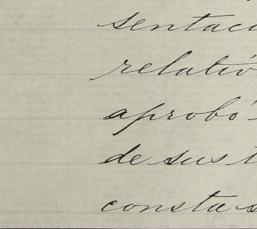 sentaci
relativ
aprobó
de sus t
consta s